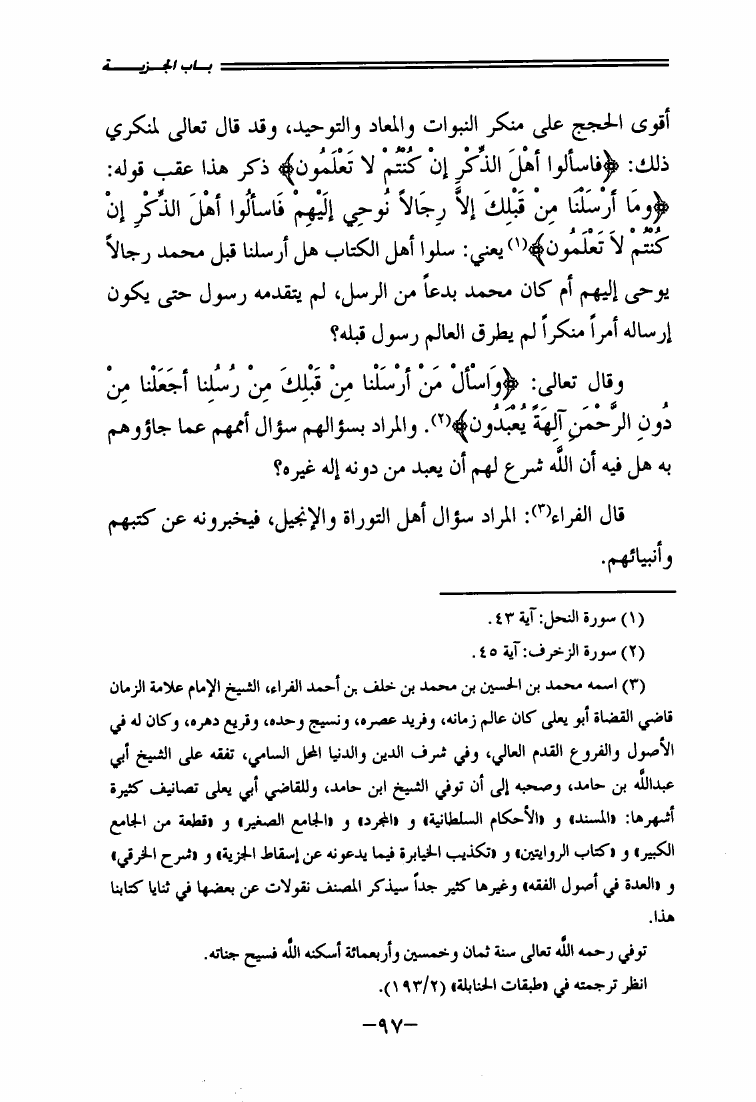 باب الجزيــة
أقوى الحجج على منكر النبوات والمعاد والتوحيد، وقد قال تعالى لمنكري
ذلك: ﴿فاسألوا أهْلَ الذِّكْرِ إنْ كُنْتُمْ لا تَعْلَمُون﴾ ذكر هذا عقب قوله:
﴿ومَا أَرْسَلْنَا مِنْ قَبْلِكَ إلاَّ رِجَالاً نُوحِي إلَيْهِمْ فَاسألُوا أهْلَ الذِّكْرِ إنْ
كُنْتُم لاَ تَعْلَمُون﴾(١) يعني: سلوا أهل الكتاب هل أرسلنا قبل محمد رجالاً
يوحى إليهم أم كان محمد بدعاً من الرسل، لم يتقدمه رسول حتى يكون
إرساله أمراً منكراً لم يطرق العالم رسول قبله؟
وقال تعالى: ﴿وَاسْألْ مَنْ أَرْسَلْنا مِنْ قَبْلِكَ مِنْ رُسُلِنا أجَعَلْنا مِنْ
دُونِ الرَّحْمَنِ آلِهَةً يُعْبَدُون﴾(٢). والمراد بسؤالهم سؤال أممهم عما جاؤوهم
به هل فيه أن اللَّه شرع لهم أن يعبد من دونه إله غيره؟
قال الفراء(٣): المراد سؤال أهل التوراة والإنجيل، فيخبرونه عن كتبهم
وأنبيائهم.
(١) سورة النحل: آية ٤٣.
(٢) سورة الزخرف: آية ٤٥.
(٣) اسمه محمد بن الحسين بن محمد بن خلف بن أحمد الفراء، الشيخ الإمام علامة الزمان
قاضي القضاة أبو يعلى كان عالم زمانه، وفريد عصره، ونسيج وحده، وقريع دهره، وكان له في
الأصول والفروع القدم العالي، وفي شرف الدين والدنيا المحل السامي، تفقه على الشيخ أبي
عبداللَّه بن حامد، وصحبه إلى أن توفي الشيخ ابن حامد، وللقاضي أبي يعلى تصانيف كثيرة
أشهرها: «المسند» و «الأحكام السلطانية» و «المجرد» و «الجامع الصغير» و «قطعة من الجامع
الكبير» و «كتاب الروايتين» و «تكذيب الخيابرة فيما يدعونه عن إسقاط الجزية» و «شرح الخرقي»
و «العدة في أصول الفقه» وغيرها كثير جداً سيذكر المصنف نقولات عن بعضها في ثنايا كتابنا
هذا.
توفي رحمه اللَّه تعالى سنة ثمان وخمسين وأربعمائة أسكنه اللَّه فسيح جناته.
انظر ترجمته في «طبقات الحنابلة» (١٩٣/٢).
–٩٧–